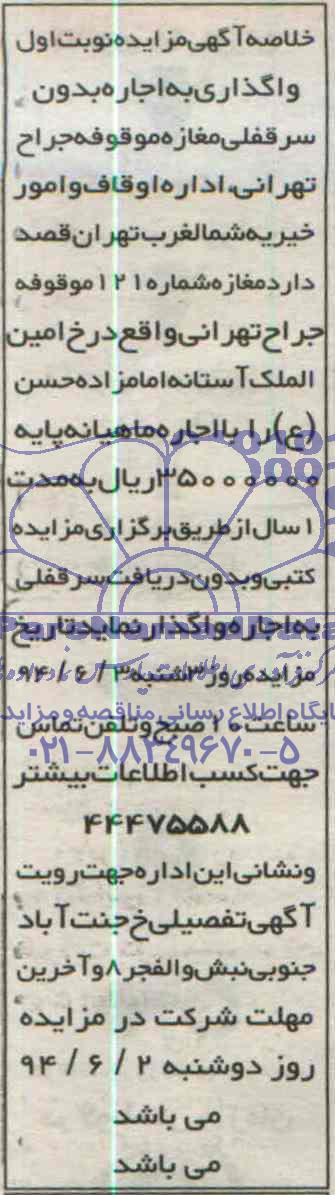 خلاصه آگهی مزایده نوبت اول
واگذاری به اجاره بدون
سرقفلی مغازه موقوفه جراح
تهرانی، اداره اوقاف و امور
خیریه شمالغرب تهران قصد
دارد مغازه شماره ۱۲۱ موقوفه
جراح تهرانی واقع در خ امین
الملک آستانه امامزاده حسن
(ع) را با اجاره ماهیانه پایه
۳۵۰۰۰۰۰۰ ریال به مدت
۱ سال از طریق برگزاری مزایده
کتبی و بدون دریافت سرقفلی
به اجاره واگذار نماید تاریخ
مزایده روز ۳شنبه ۳ / ۶ / ۹۴
ساعت ۱۰ صبح و تلفن تماس
۰۲۱-۸۸۳۴۹۶۷۰-۵
جهت کسب اطلاعات بیشتر
۴۴۴۷۵۵۸۸
ونشانی این اداره جهت رویت
آگهی تفصیلی خ جنت آباد
جنوبی نبش والفجر ۸ و آخرین
مهلت شرکت در مزایده
روز دوشنبه ۲ / ۶ / ۹۴
می باشد
می باشد